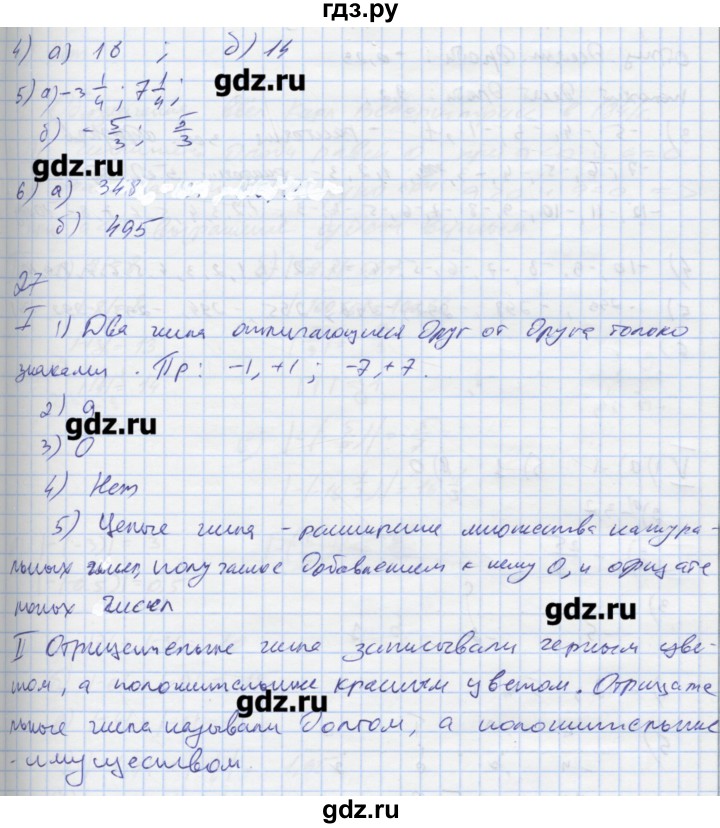 гдз.ру
4) а) 18 ; б) 14
5) а) -3 1/4 ; 7 1/4 ;
б) - 5/3 ; 5/3
gdz.ru
6) а) 348
б) 495
27
I 1) Два числа отличающиеся друг от друга только
знаками. Пр: -1, +1 ; -7, +7.
2) a
gdz.ru
3) 0
4) Нет
5) Целые числа - расширение множества натура-
льных чисел, получаемое добавлением к нему 0, и отрицате
льных чисел
gdz.ru
II Отрицательные числа записывали черным цве-
том, а положительные красным цветом. Отрицате
gdz.ru
льные числа называли долгом, а положительные
- имуществом.
gdz.ru